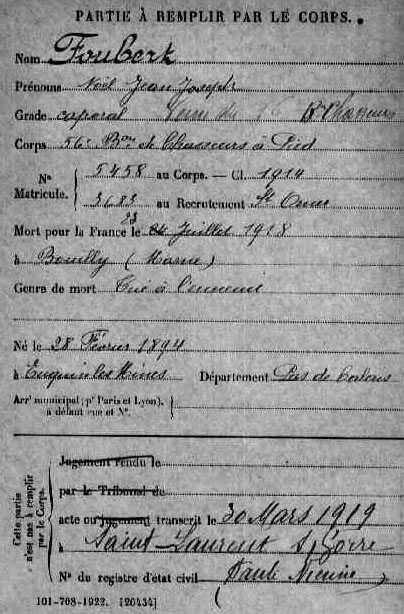 PARTIE À REMPLIR PAR LE CORPS.
Nom Foubert
Prénoms Noël Jean Joseph
Grade caporal
Corps 56e Bon de Chasseurs à Pied
N° Matricule. 5458 au Corps. — Cl. 1914
3683 au Recrutement St Omer
Mort pour la France le 23 Juillet 1918
à Bouilly (Marne)
Genre de mort Tué à l'ennemi
Né le 28 Février 1894
à Enquin les Mines Département Pas de Calais
Arrt municipal (pr Paris et Lyon), à défaut rue et N°.
Cette partie n'est pas à remplir par le Corps.
Jugement rendu le
par le Tribunal de
acte ou jugement transcrit le 30 Mars 1919
à Saint Laurent s/ Gorre
N° du registre d'état civil Haute Vienne
101-708-1922. [20434]